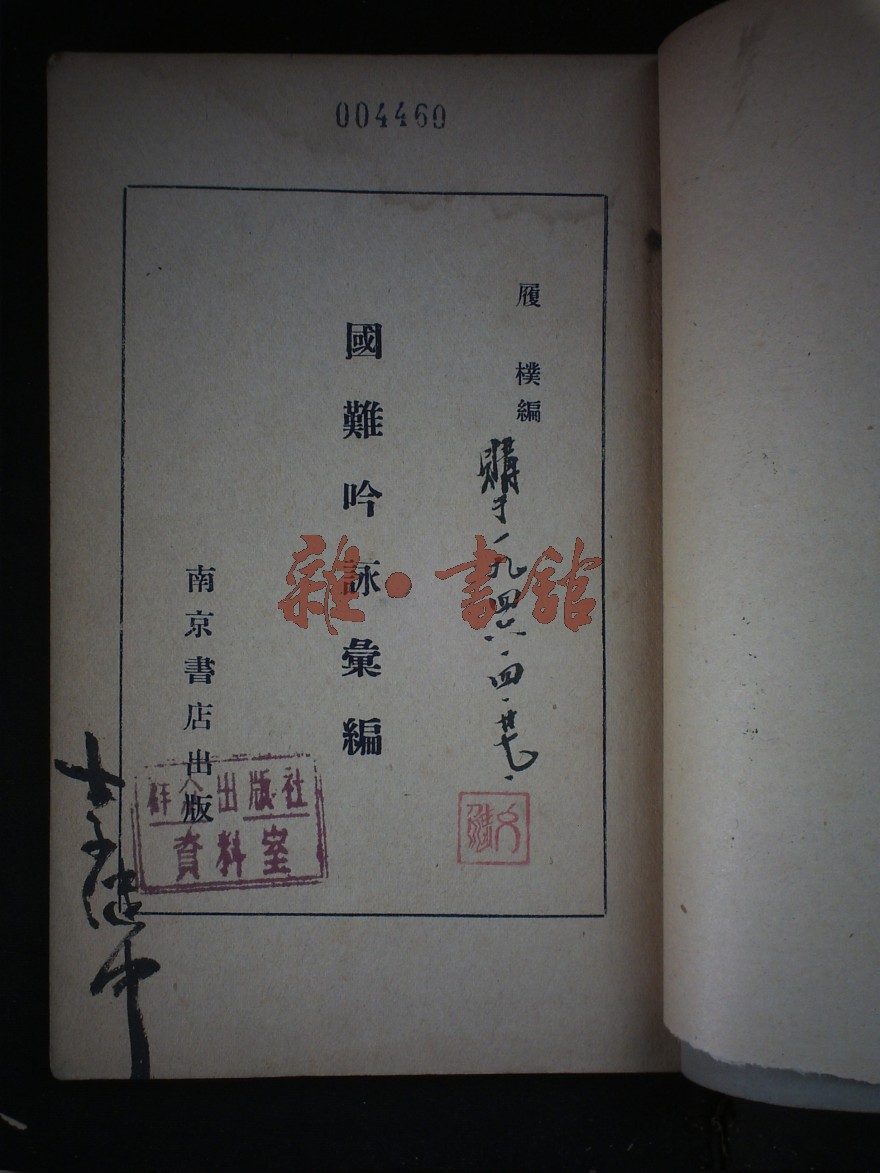 004460
履樸編
購于一九四六·四·廿七·
國難吟詠彙編
南京書店出版
群众出版社
資料室
雜·書館